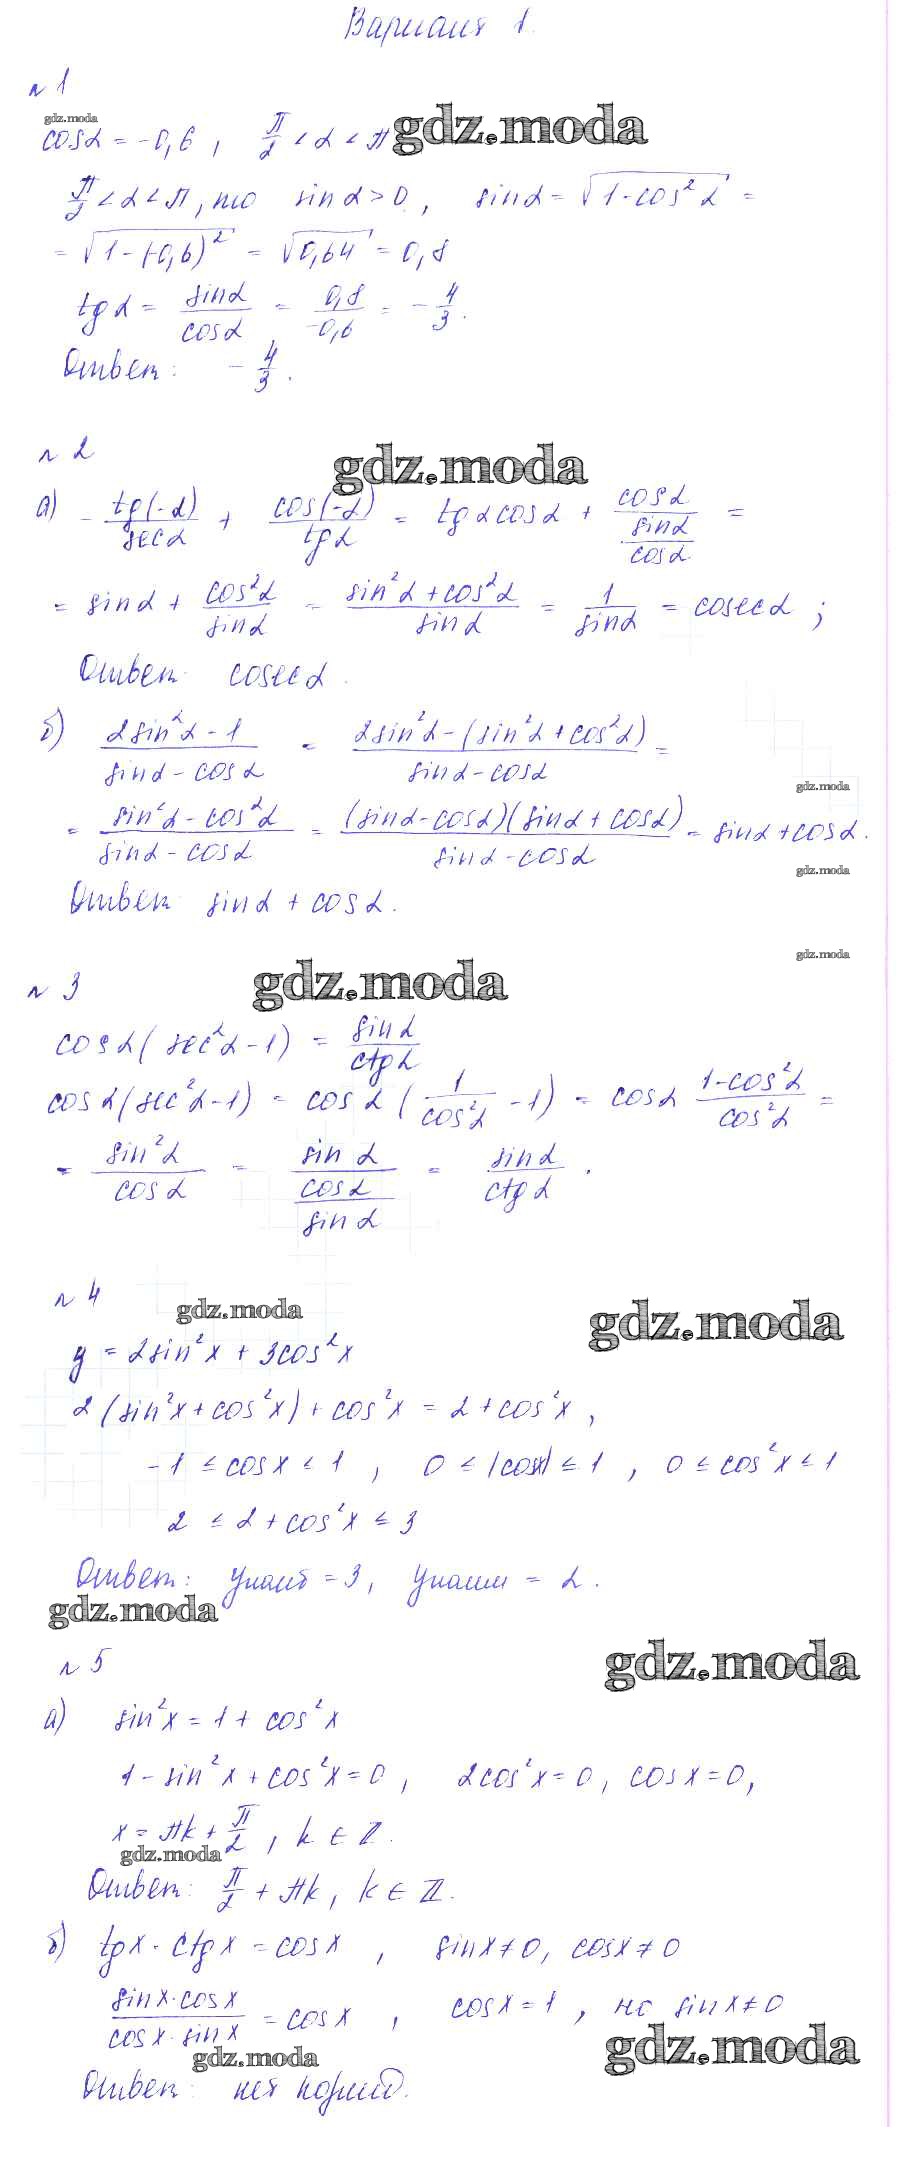 Вариант 1.
№1
gdz.moda
cosα = -0,6 , π/2 < α < π
gdz.moda
π/2 < α < π, то sinα > 0, sinα = √(1-cos²α) =
= √(1-(-0,6)²) = √(0,64) = 0,8
tgα = sinα/cosα = 0,8/-0,6 = -4/3.
Ответ: -4/3.
№2
gdz.moda
а) - tg(-α)/secα + cos(-α)/tgα = tgα cosα + cosα/(sinα/cosα) =
= sinα + cos²α/sinα = (sin²α + cos²α)/sinα = 1/sinα = cosecα ;
Ответ: cosecα.
б) (2sin²α - 1)/(sinα - cosα) = (2sin²α - (sin²α + cos²α))/(sinα - cosα) =
gdz.moda
= (sin²α - cos²α)/(sinα - cosα) = (sinα - cosα)(sinα + cosα)/(sinα - cosα) = sinα + cosα.
gdz.moda
Ответ: sinα + cosα.
gdz.moda
№3
gdz.moda
cosα(sec²α - 1) = sinα/ctgα
cosα(sec²α - 1) = cosα(1/cos²α - 1) = cosα (1-cos²α)/cos²α =
= sin²α/cosα = sinα/(cosα/sinα) = sinα/ctgα.
№4
gdz.moda
gdz.moda
y = 2sin²x + 3cos²x
2(sin²x + cos²x) + cos²x = 2 + cos²x,
-1 ≤ cosx ≤ 1 , 0 ≤ |cosx| ≤ 1 , 0 ≤ cos²x ≤ 1
2 ≤ 2 + cos²x ≤ 3
Ответ: yнаиб = 3, yнаим = 2.
gdz.moda
№5
gdz.moda
а) sin²x = 1 + cos²x
1 - sin²x + cos²x = 0 , 2cos²x = 0 , cosx = 0,
x = πk + π/2 , k ∈ Z.
gdz.moda
Ответ: π/2 + πk, k ∈ Z.
б) tgx · ctgx = cosx , sinx ≠ 0, cosx ≠ 0
(sinx·cosx)/(cosx·sinx) = cosx , cosx = 1 , но sinx ≠ 0
gdz.moda
gdz.moda
Ответ: нет корней.